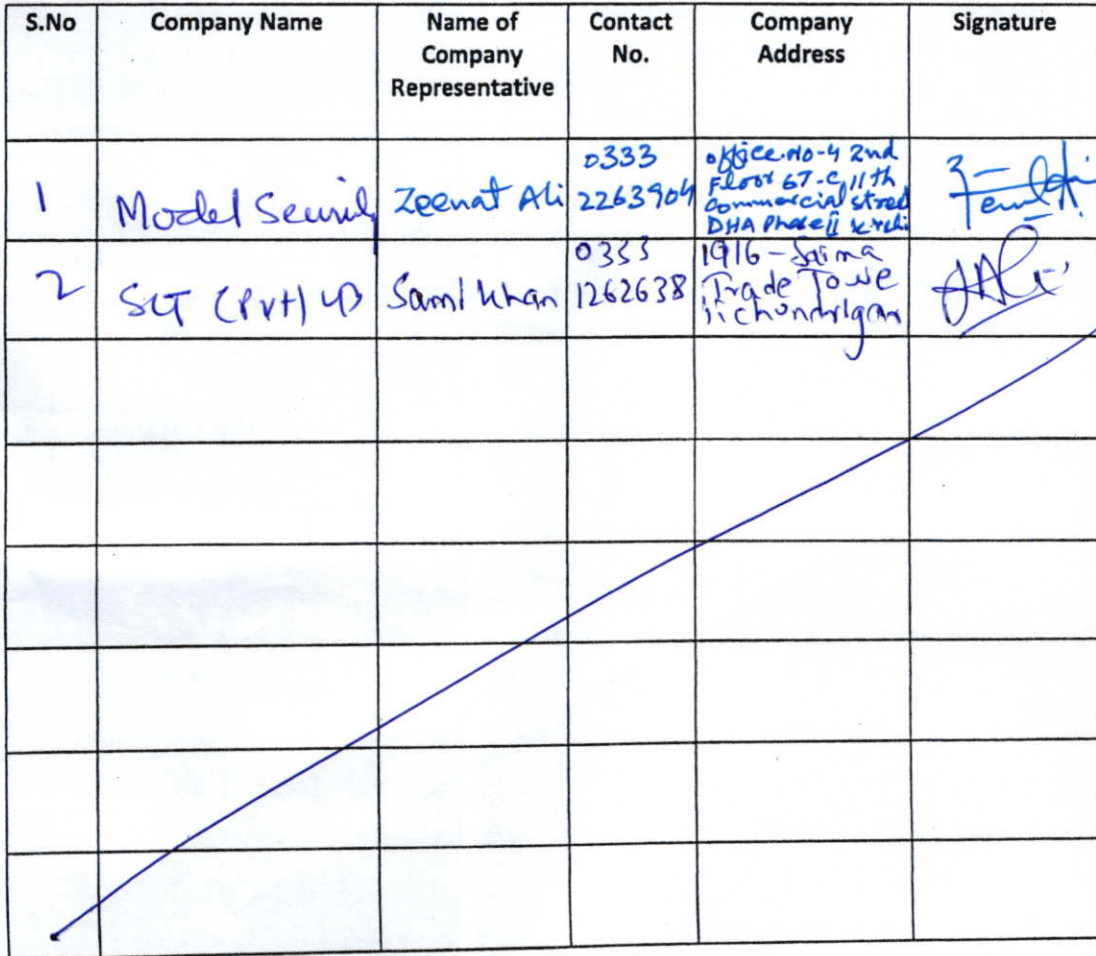 S.No Company Name Name of Company Representative Contact No. Company Address Signature
1 Model Security Zeenat Ali 0333 2263904 office.no-4 2nd Floor 67-C 11th Commercial street DHA Phase II
2 (Pvt) Sami Khan 0333 1262638 1916-Saima Trade Towe